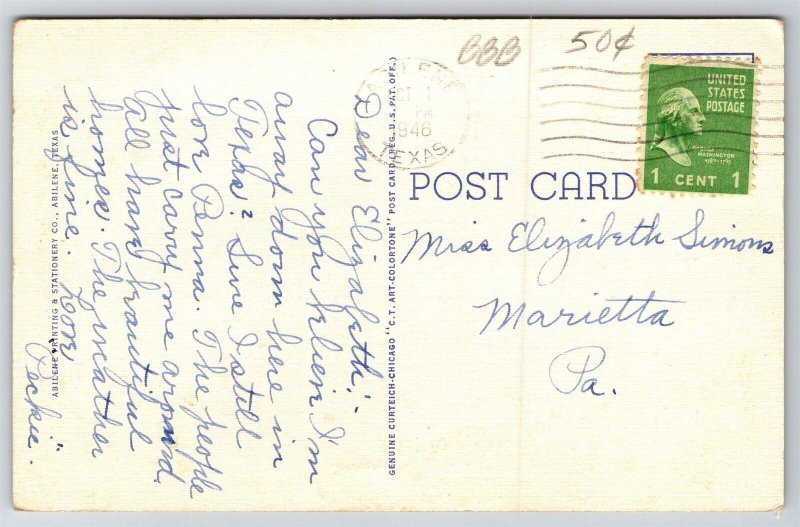 BBB
50¢
1946
TEXAS
UNITED
STATES
POSTAGE
GEORGE
WASHINGTON
1789-1797
1 CENT 1
POST CARD
Miss Elizabeth Simons
Marietta
Pa.
Dear Elizabeth,
Can you believe I'm
away down here in
Texas? Sure I still
love Penna. The people
just carry me around.
All have beautiful
homes. The weather
is fine. Love
"Peckie".
GENUINE CURTEICH-CHICAGO "C.T. ART-COLORTONE" POST CARD (REG. U.S. PAT. OFF.)
ABILENE PRINTING & STATIONERY CO., ABILENE, TEXAS